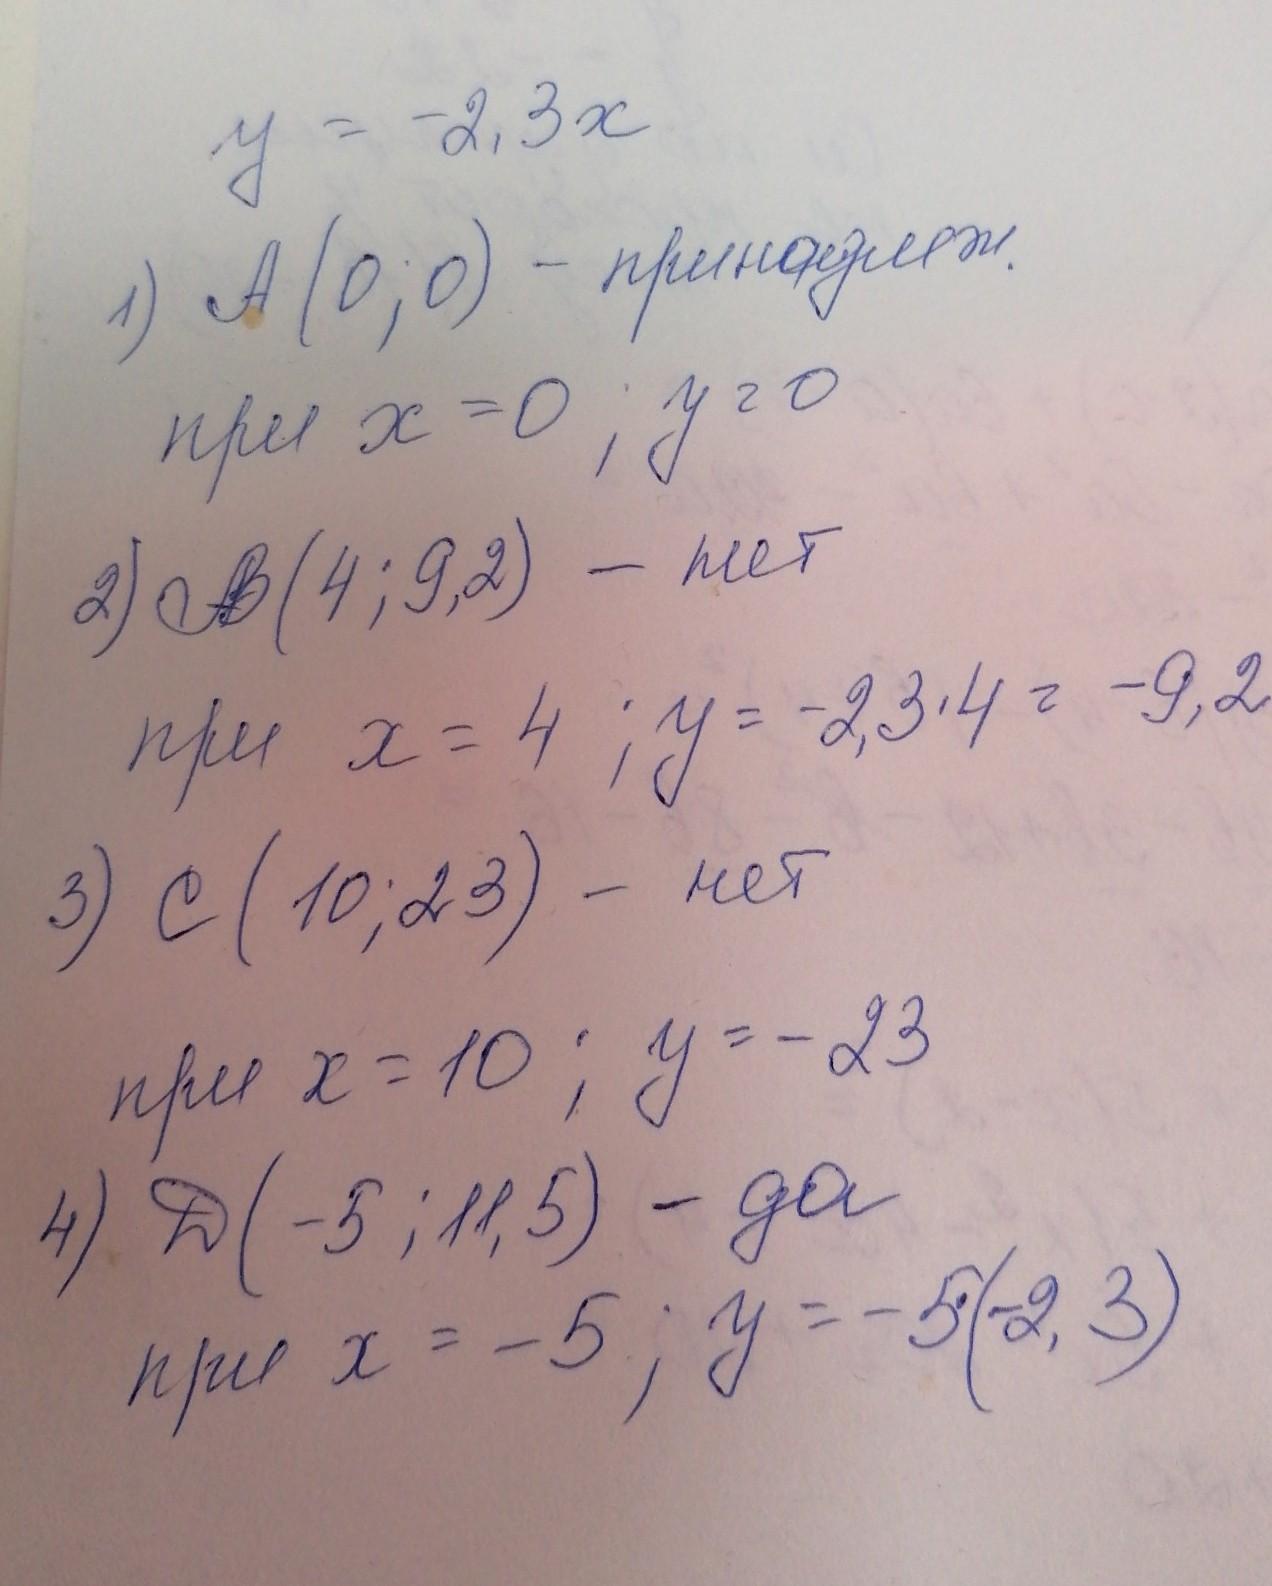 y = -2,3x
1) A(0;0) - принадлеж.
при x = 0 ; y = 0
2) B(4;9,2) - нет
при x = 4 ; y = -2,3·4 = -9,2
3) C(10;23) - нет
при x = 10 ; y = -23
4) D(-5;11,5) - да
при x = -5 ; y = -5·(-2,3)